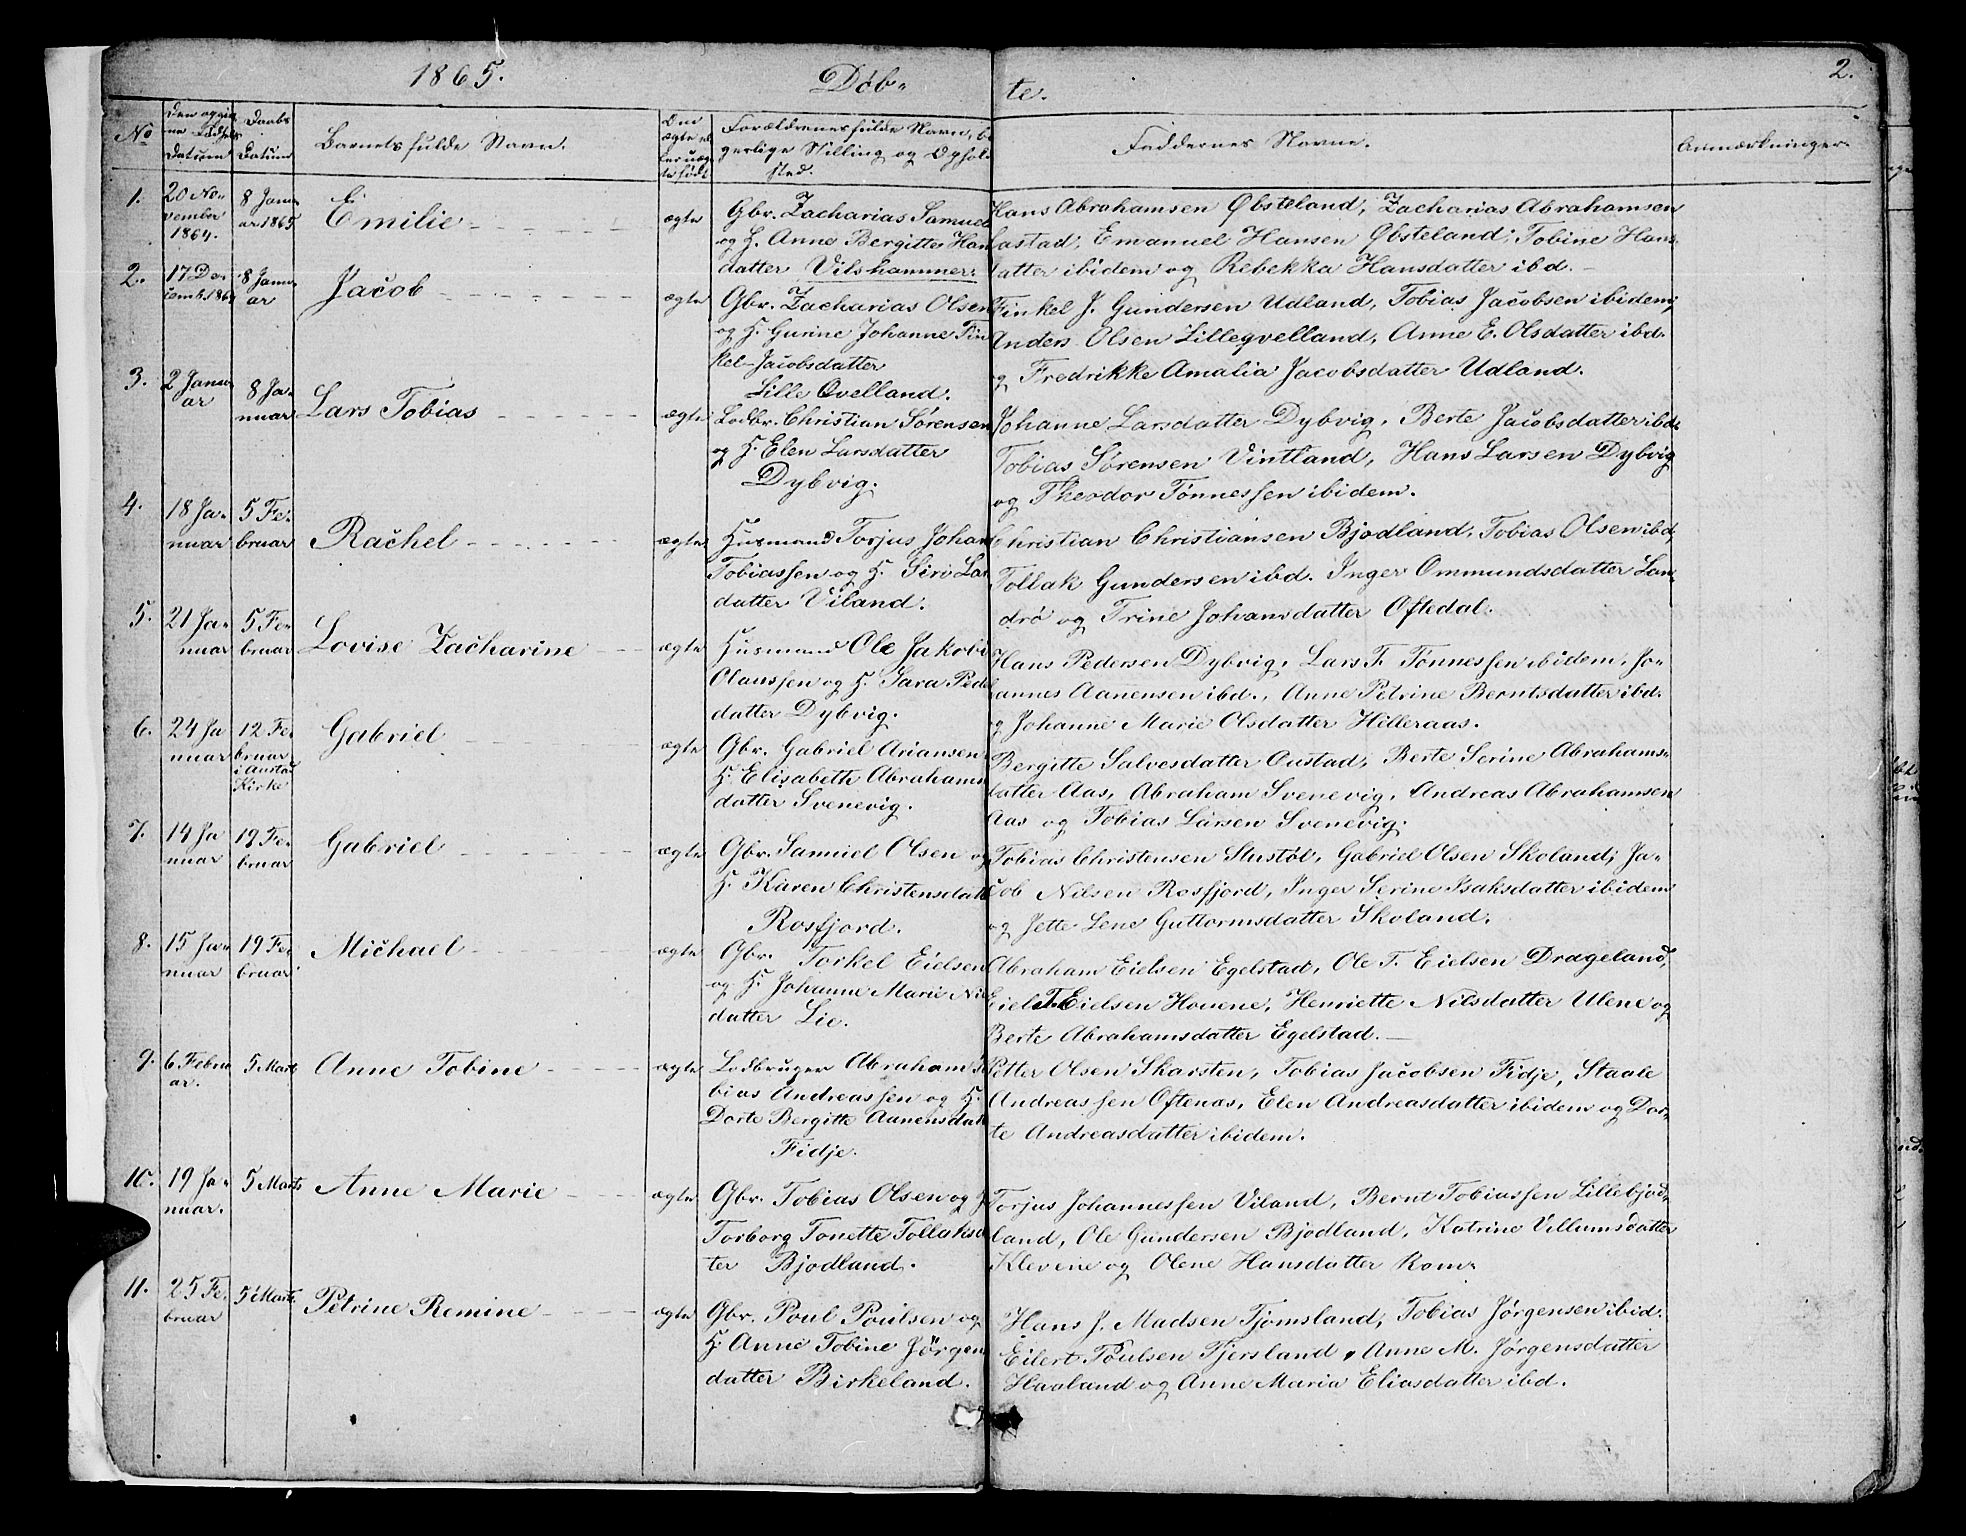 1865. Døb- te. 2.
No
Den opgiv
ne Fødsels
Datum
Daabs
Datum
Barnets fulde Navn.
Den
ægte el
ler uæg
te født
Forældrenes fulde Navn, b
gerlige Stilling og Ophol
sted.
Faddernes Navne.
Anmærkninger.
1. 20 No-
vember
1864.
8 Janu
ar 1865
Emilie
ægte
Gbr. Zacharias Samuel
og H. Anne Bergitte Han
datter Vilshammer.
Hans Abrahamsen Øbsteland, Zacharias Abrahamsen
Emanuel Hansen Øbsteland, Tobine Hans-
datter ibidem og Rebekka Hansdatter ibd.
2. 17 De-
cemb. 1864
8 Janu
ar
Jacob
ægte
Gbr. Zacharias Olsen
og H. Gurine Johanne Fin
kel-Jacobsdatter
Lille Qvelland.
Finkel J. Gundersen Udland, Tobias Jacobsen ibidem,
Anders Olsen Lilleqvelland, Anne E. Olsdatter ibd.
og Fredrikke Amalia Jacobsdatter Udland.
3. 2 Janu
ar
8 Ja-
nuar
Lars Tobias
ægte
Lodbr. Christian Sørensen
og H. Elen Larsdatter
Dybvig.
Johanne Larsdatter Dybvig, Berte Jacobsdatter ibd.
Tobias Sørensen Vintland, Hans Larsen Dybvig
og Theodor Tønnessen ibidem.
4. 18 Ja-
nuar
5 Fe-
bruar
Rachel
ægte
Husmand Torjus Johan
Tobiassen og H. Siri La
datter Viland.
Christian Christiansen Bjodland, Tobias Olsen ibd,
Tollak Gundersen ibd. Inger Ommundsdatter Lan-
drø og Trine Johansdatter Oftedal.
5. 21 Ja-
nuar
5 Fe-
bruar
Lovise Zacharine
ægte
Husmand Ole Jakobi
Olaussen og H. Sara Peder
datter Dybvig.
Hans Pedersen Dybvig, Lars T. Tønnessen ibidem, Jo-
hannes Aanensen ibd., Anne Petrine Berntsdatter ibd.
og Johanne Marie Olsdatter Hilleraas.
6. 24 Ja
nuar
12 Fe-
bruar
i Austad
Kirke
Gabriel
ægte
Gbr. Gabriel Ariansen
H. Elisabeth Abrahams
datter Svenevig.
Bergitte Salvesdatter Oustad, Berte Serine Abrahams-
datter Aas, Abraham Svenevig, Andreas Abrahamsen
Aas og Tobias Larsen Svenevig.
7. 14 Ja
nuar
19 Fe-
bruar
Gabriel
ægte
Gbr. Samuel Olsen og
H. Karen Christensdatt
Rosfjord.
Tobias Christensen Stustøl, Gabriel Olsen Skoland, Ja-
cob Nilsen Rosfjord, Inger Serine Isaksdatter ibidem
og Jette Lene Guttormsdatter Skoland.
8. 15 Ja-
nuar
19 Fe-
bruar
Michael
ægte
Gbr. Torkel Eielsen
og H. Johanne Marie Nil
datter Lie.
Abraham Eielsen Egelstad, Ole T. Eielsen Drageland,
Eiel T. Eielsen Houene, Henriette Nilsdatter Ulene og
Berte Abrahamsdatter Egelstad.
9. 6 Febru
ar.
5 Marts
Anne Tobine
ægte
Lodbruger Abraham To
bias Andreassen og H.
Dorte Bergitte Aanensdat
Fidje.
Petter Olsen Skarsten, Tobias Jacobsen Fidje, Staale
Andreassen Oftenæs, Elen Andreasdatter ibidem og Dor-
te Andreasdatter ibidem.
10. 19 Ja-
nuar.
5 Marts
Anne Marie
ægte
Gbr. Tobias Olsen og H.
Torborg Tonette Tollaksd
ter Bjodland.
Torjus Johannessen Viland, Bernt Tobiassen Lillebjod-
land, Ole Gundersen Bjodland, Katrine Villumsdatter
Klevene og Olene Hansdatter Rom.
11. 25 Fe-
bruar
5 Marts.
Petrine Remine
ægte
Gbr. Poul Poulsen og
H. Anne Tobine Jørgen
datter Birkeland.
Hans J. Madsen Tjomsland, Tobias Jørgensen ibid.
Eilert Poulsen Tjersland, Anne M. Jørgensdatter
Haaland og Anne Maria Eliasdatter ibd.